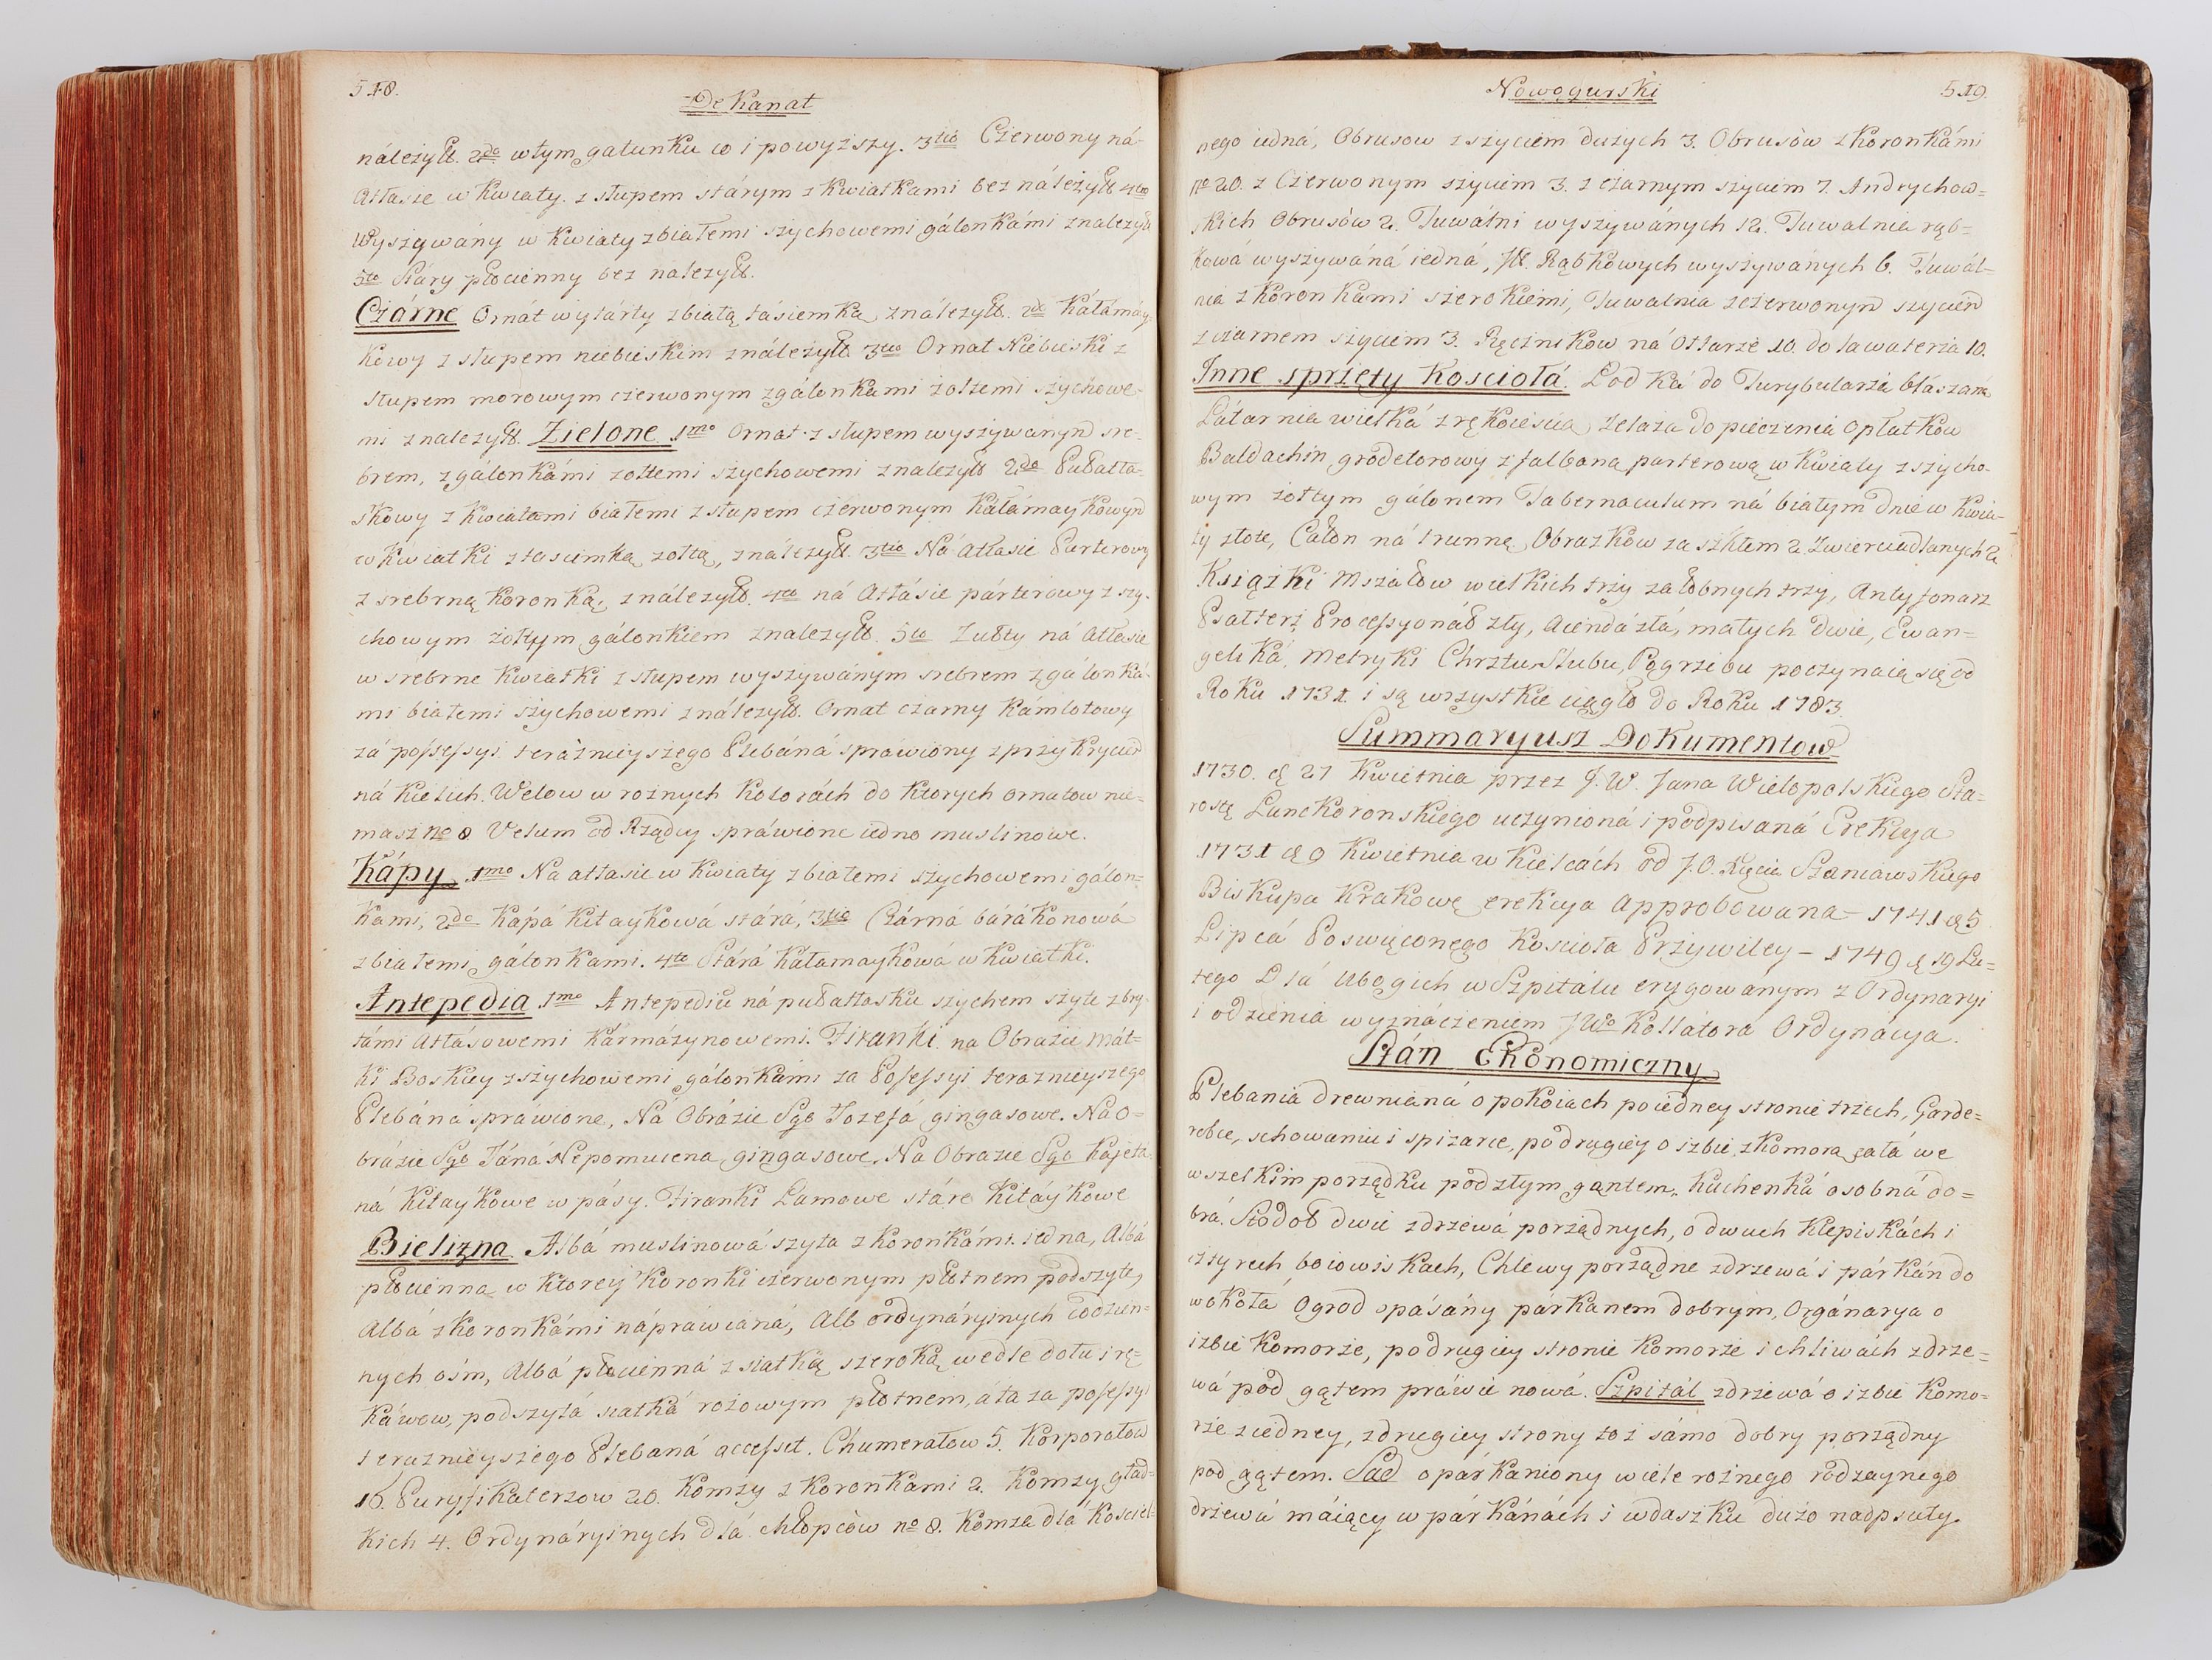 518.
De Kanat
náleżytt. 2do wtym gatunku co i powyższy. 3tio Czerwony ná
Attasie w Kwiaty. z słupem stárym z Kwiatkami bez náleżytt 4to
Wyszywány w Kwiaty zbiałemi szychowemi gálonkámi znależytt
5to Stáry płocienny bez należytt.
Czárne Ornát wytárty zbiałą tásiemkąználeżytt. 2do Kátámáy
kowy z słupem niebieskim ználeżytt 3tio Ornat Niebieski z
słupem morowym czerwonym zgálonkami żołtemi szychowe-
mi znależytt. Zielone 1mo Ornat z słupem wyszywanym sre-
brem, zgalonkámi żołtemi szychowemi znależytt 2do Pułatta-
skowy z Kwiatami białemi z słupem czerwonym Kátámaykowym
w kwiatki z tasiemką żołtą, ználeżytt. 3tio Ná Attasie Parterowy
z srebrną Koronką, ználeżytt. 4to ná Attásie párterowy z szy-
chowym żołtym gálonkiem znależytt. 5to Żułty ná Attasie
w srebrne kwiatki z słupem wyszywánym srebrem zgálonká-
mi białemi szychowemi ználeżytt. Ornat czarny Kamlotowy
zá possessyi teráznieyszego Plebáná spráwiony zprzykryciem
ná Kielich. Welow w rożnych Kolorách do Ktorych ornatow nie-
masz no 8 Velum od Rządcy spráwione iedno muslinowe.
Kápy 1mo Na attasie w Kwiaty zbiałemi szychowemi gálon-
kami, 2do Kápá Kitaykowá stárá, 3tio Czárná bárákonowá
zbiałemi gálonkami. 4to Stárá Kałamaykowá w Kwiatki.
Antepedia 1mo Antepediu ná pułattasku szychem szyte zbry-
támi attásowemi Kármázynowemi. Firanki na Obrazie Mát-
ki Boskiey zszychowemi gálonkámi za Possessyi teraznieyszego
Plebáná spráwione, Ná Obrázie Sgo Jozefá gingasowe. Na O-
brázie Sgo Jáná Nepomucena gingasowe. Na Obrazie Sgo Kajeta-
ná Kitaykowe w pásy. Firanki Lamowe stáre Kitáykowe
Bielizna Albá muslinowá szyta z koronkámi iedna, Albá
płocienna w ktorey koronki czerwonym płotnem podszyte,
Albá z koronkámi nápráwianá, Alb ordynáryinych codzien-
nych ośm, Albá płocienná z siatką szeroką wedle dołu i rę-
káwow, podszytá siatká rożowym płotnem, áta za possessyi
terazniejszego Plebaná accessit. Chumerałow 5. Korporałow
16. Puryfikaterzow 20. Komży z koronkami 2. Komży gład-
kich 4. Ordynáryinych dlá chłopców no 8. Komża dlá Kościel-
Nowogurski
519.
nego iedná, Obrusow zszyciem dużych 3. Obrusów z koronkámi
no 20. z Czerwonym szyciem 3. z czarnym szyciem 7. Andrychow-
skich Obrusów 2. Tuwálni wyszywánych 12. Tuwalnia rąb-
kowá wyszywáná iedná, Rąbkowych wyszywánych 6. Tuwál-
nia z koronkami szerokiemi, Tuwalnia zczerwonym szyciem
zczarnem szyciem 3. Ręczników ná Ołtarze 10. do lawaterza 10.
Inne sprzęty Kosciołá. Łodká do Turybularza blászana
Látarnia wielká z rękoieścią żelaza do pieczenia opłatków
Baldachin grodetorowy z falbaną parterową w kwiaty zszycho-
wym żołtym gálonem Tabernaculum ná białym dnie w kwia-
ty złote, Całon ná trunnę Obrazków za szkłem 2 Zwierciadlanych 2
Książki Mszałow wielkich trzy żałobnych trzy, Antyfonarz
Psałterz Processyonáł zły, Aiendá złá, małych dwie, Ewan-
geliká, Metryki Chrztu Slubu, Pogrzebu poczynaią się od
Roku 1731. i są wszystkie ciągło do Roku 1783.
Summaryusz Dokumentow
1730. d 27 Kwietnia przez J. W. Jana Wielopolskiego Sta-
rostę Lanckoronskiego uczynioná i podpisaná Erekcya
1731 d 9 Kwietnia w Kielcách od J. O. Xięcia Szaniawskiego
Biskupa Krakowę erekcya Approbowana - 1741 d 5
Lipcá Poswięconego Kosciołá Przywiley - 1749 d 19 Lu-
tego Dlá Ubogich w Szpitálu erygowanym z Ordynaryi
i odzienia wyznáczeniem JWo Kollátora Ordynácya.
Stán Ekonomiczny
Plebania drewnianá o pokoiach po iedney stronie trzech, Garde-
robie, schowaniu i spiżarce, po drugiey o izbie z komorą całá we
wszelkim porządku pod złym gontem, Kuchenká osobná do-
bra. Stodoł dwie zdrzewá porządnych, o dwuch Klepiskách i
cztyrech boiowiskach, Chlewy porządne zdrzewá i párkán do
wokołá Ogrod opásány párkanem dobrym, Orgánarya o
izbie Komorze, po drugiey stronie Komorze i chliwách zdrze-
wá pod gątem práwie nowá. Szpitál zdrzewá o izbie Komo-
rze ziedney, zdrugiey strony toż sámo dobry porządny
pod gątem. Sad opárkaniony wiele rożnego rodzaynego
drzewá máiący w párkánách i wdaszku dużo nadpsuty.